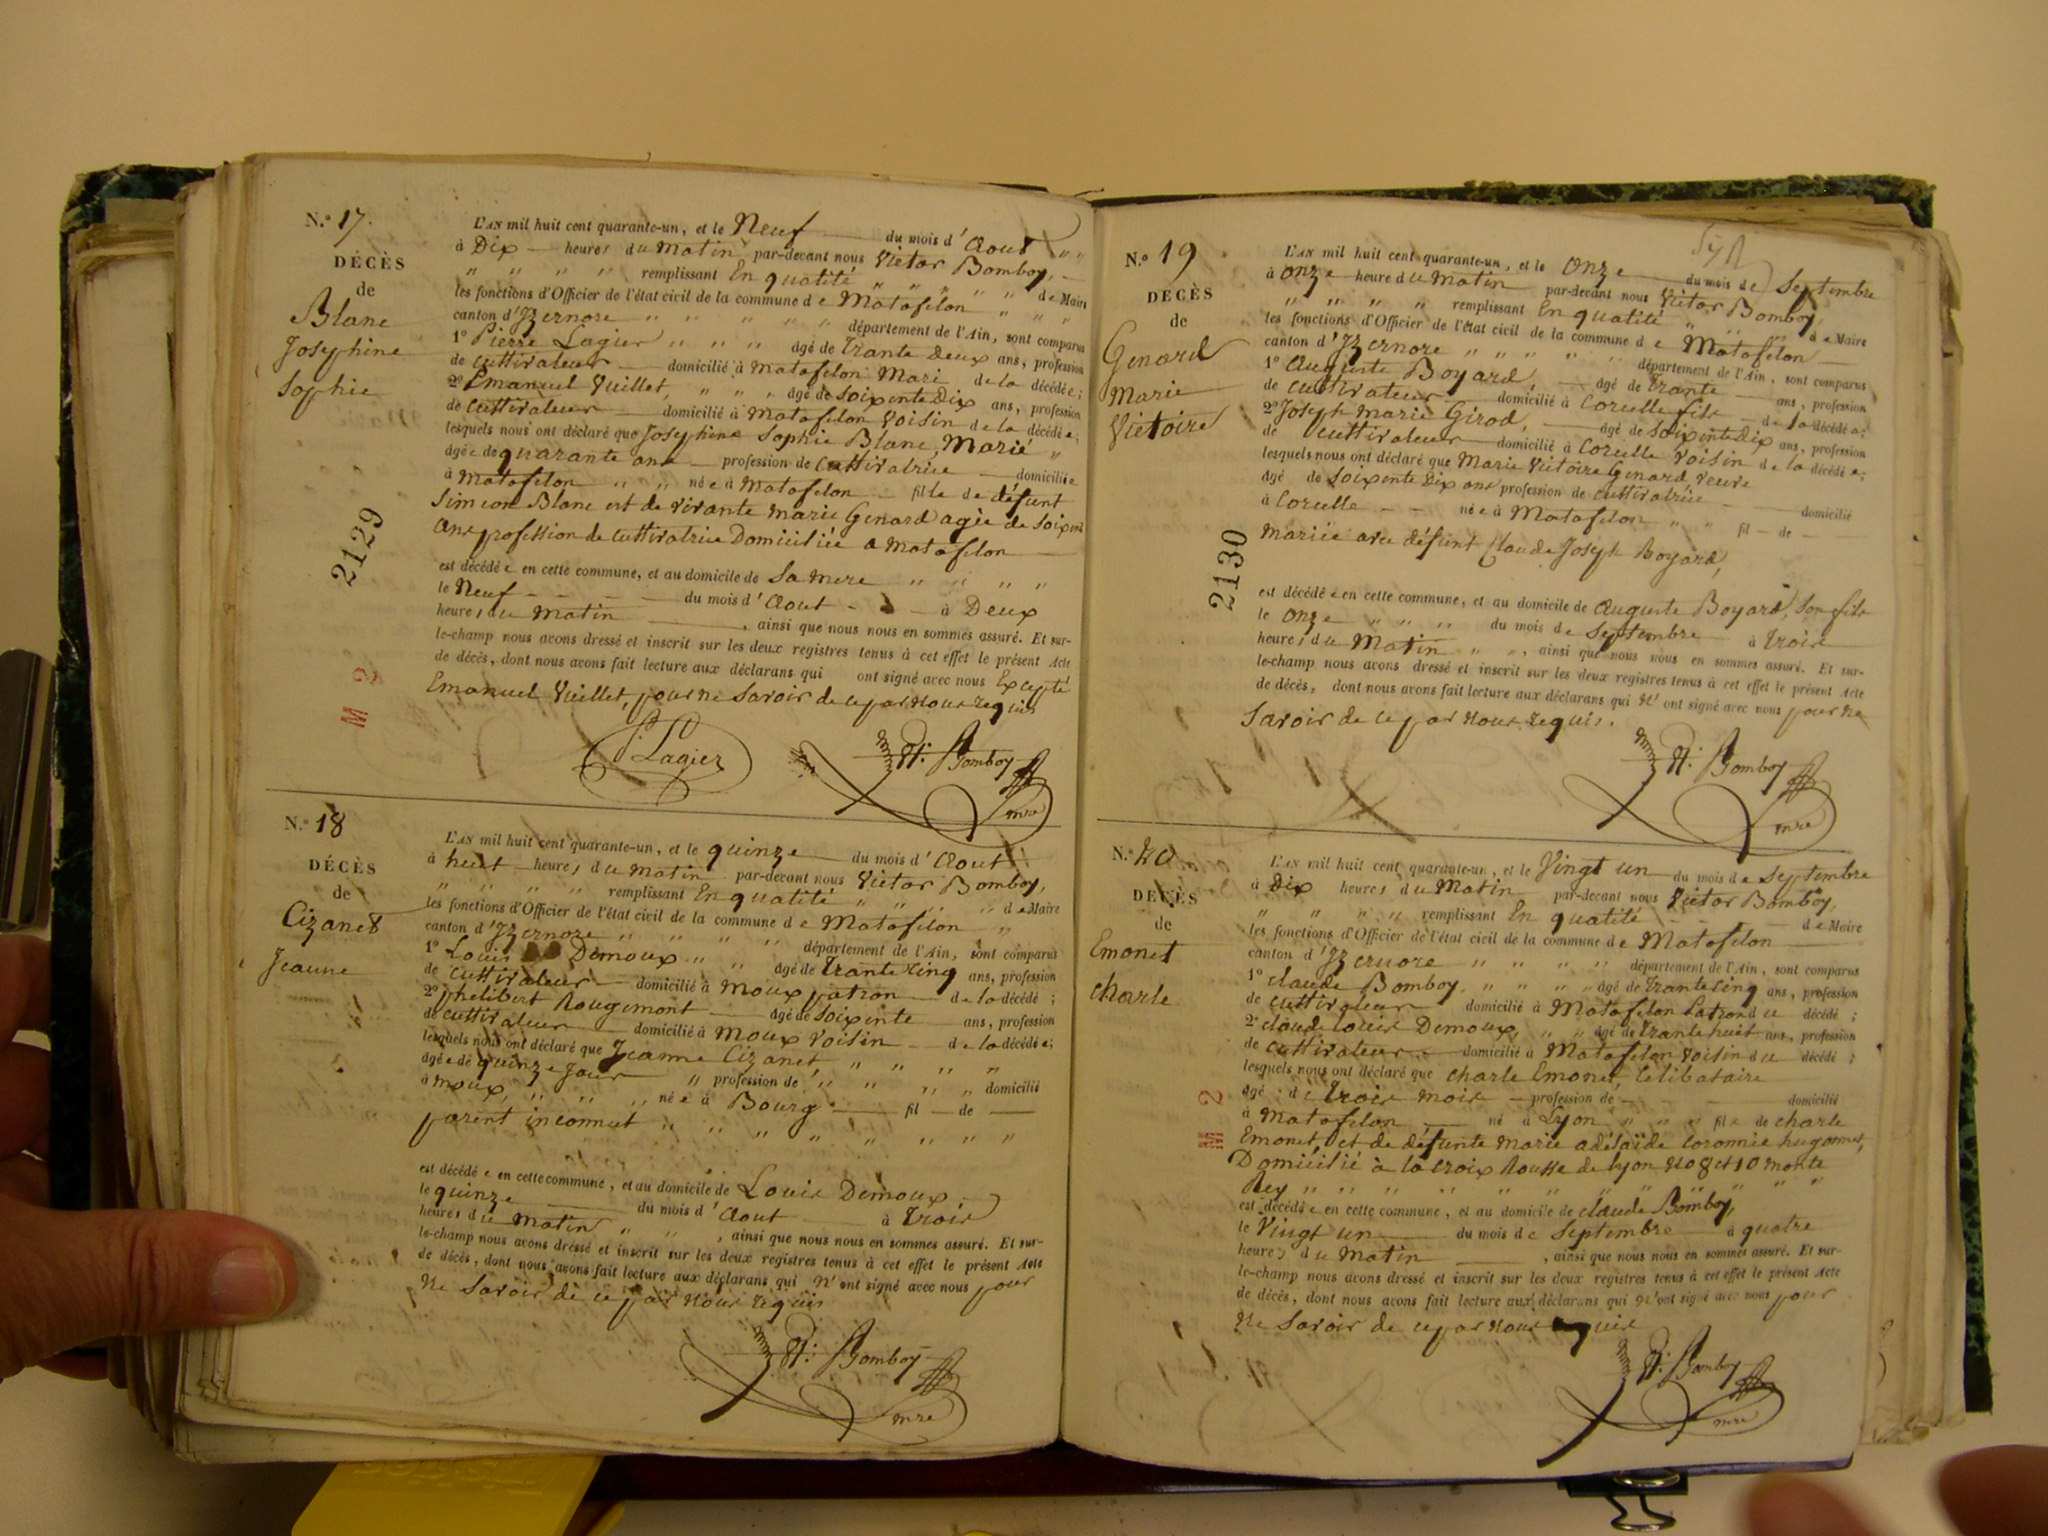 N.º 17.
DÉCÈS
de
Blanc
Josephine
Sophie
2129
M 2
L'AN mil huit cent quarante-un, et le Neuf du mois d'Aout
à Dix heures du matin par-devant nous Victor Bomboy,
remplissant En quatité de Maire
les fonctions d'Officier de l'état civil de la commune de Matafelon
canton d'Izernore département de l'Ain, sont comparus
1º Pierre Lagier âgé de trante deux ans, profession
de cuttivateur domicilié à matafelon Mari de la décédée;
2º Emanuel Vuillet, âgé de Soixente Dix ans, profession
de cuttivateur domicilié à matafelon Voisin de la décédée;
lesquels nous ont déclaré que Josephine Sophie Blanc, Marié
âgée de quarante ans profession de Cuttivatrice domiciliée
à matafelon née à Matafelon fille de défunt
Simeon Blanc et de vivante marie Genard agée de Soixente
ans profession de cuttivatrice Domiciliée a matafelon
est décédée en cette commune, et au domicile de Sa mere
le Neuf du mois d'Aout à Deux
heures du matin, ainsi que nous nous en sommes assuré. Et sur-
le-champ nous avons dressé et inscrit sur les deux registres tenus à cet effet le présent Acte
de décès, dont nous avons fait lecture aux déclarans qui ont signé avec nous Excepté
Emanuel Vuillet, pour ne Savoir de ce par nous requis
P. Lagier Vr. Bomboy
mre
N.º 18
DÉCÈS
de
Cizanet
Jeanne
L'AN mil huit cent quarante-un, et le quinze du mois d'Aout
à huit heures du matin par-devant nous Victor Bomboy,
remplissant En quatité de Maire
les fonctions d'Officier de l'état civil de la commune de Matafelon
canton d'Izernore département de l'Ain, sont comparus
1º Louis Demoux âgé de trante cinq ans, profession
de cuttivateur domicilié à moux patron de la décédé;
2º phelibert Rougemont âgé de soixente ans, profession
de cuttivateur domicilié à moux Voisin de la décédée;
lesquels nous ont déclaré que Jeanne Cizanet,
âgée de quinze jour profession de domicilié
à moux, née à Bourg fil de
parent inconnut
est décédée en cette commune, et au domicile de Louis Demoux
le quinze du mois d'Aout à trois
heures du matin, ainsi que nous nous en sommes assuré. Et sur-
le-champ nous avons dressé et inscrit sur les deux registres tenus à cet effet le présent Acte
de décès, dont nous avons fait lecture aux déclarans qui n'ont signé avec nous pour
ne savoir de ce par nous requis
Vr. Bomboy
mre
N.º 19
DÉCÈS
de
Genard
Marie
Victoire
2130
L'AN mil huit cent quarante-un, et le onze du mois de Septembre
à onze heure du matin par-devant nous Victor Bomboy,
remplissant En quatité de Maire
les fonctions d'Officier de l'état civil de la commune de Matafelon
canton d'Izernore département de l'Ain, sont comparus
1º Auguste Boyard, âgé de trante ans, profession
de cuttivateur domicilié à Corcelle fils de la décédée;
2º Joseph marie Girod, âgé de Soixente Dix ans, profession
de cuttivateur domicilié à Corcelle Voisin de la décédée;
lesquels nous ont déclaré que Marie Victoire Genard veuve
âgé de soixente Dix ans profession de cuttivatrice domicilié
à Corcelle née à Matafelon fil de
mariée avec défunt Claude Joseph Boyard,
est décédée en cette commune, et au domicile de Auguste Boyard, Son fils
le onze du mois de Septembre à trois
heures du Matin, ainsi que nous nous en sommes assuré. Et sur-
le-champ nous avons dressé et inscrit sur les deux registres tenus à cet effet le présent Acte
de décès, dont nous avons fait lecture aux déclarans qui n'ont signé avec nous pour ne
Savoir de ce par nous requis.
Vr. Bomboy
mre
N.º 20
DÉCÈS
de
Emonet
charle
M 2
L'AN mil huit cent quarante-un, et le Vingt un du mois de Septembre
à Dix heures du Matin par-devant nous Victor Bomboy,
remplissant En quatité de Maire
les fonctions d'Officier de l'état civil de la commune de Matafelon
canton d'Izernore département de l'Ain, sont comparus
1º claude Bomboy, âgé de trante cinq ans, profession
de cuttivateur domicilié à Matafelon Patron du décédé;
2º claude Louis Demoux, âgé de trante huit ans, profession
de cuttivateur domicilié à Matafelon Voisin du décédé;
lesquels nous ont déclaré que charle Emonet, Celibataire
âgé de trois mois profession de domicilié
à Matafelon né à Lyon fils de charle
Emonet, et de défunte marie adelaïde hugonnet,
Domicilié à la croix Rousse de lyon No 8 et 10 monte
Rey
est décédée en cette commune, et au domicile de claude Bomboy,
le Vingt un du mois de Septembre à quatre
heures du Matin, ainsi que nous nous en sommes assuré. Et sur-
le-champ nous avons dressé et inscrit sur les deux registres tenus à cet effet le présent Acte
de décès, dont nous avons fait lecture aux déclarans qui n'ont signé avec nous pour
Ne Savoir de ce par nous requis
Vr. Bomboy
mre